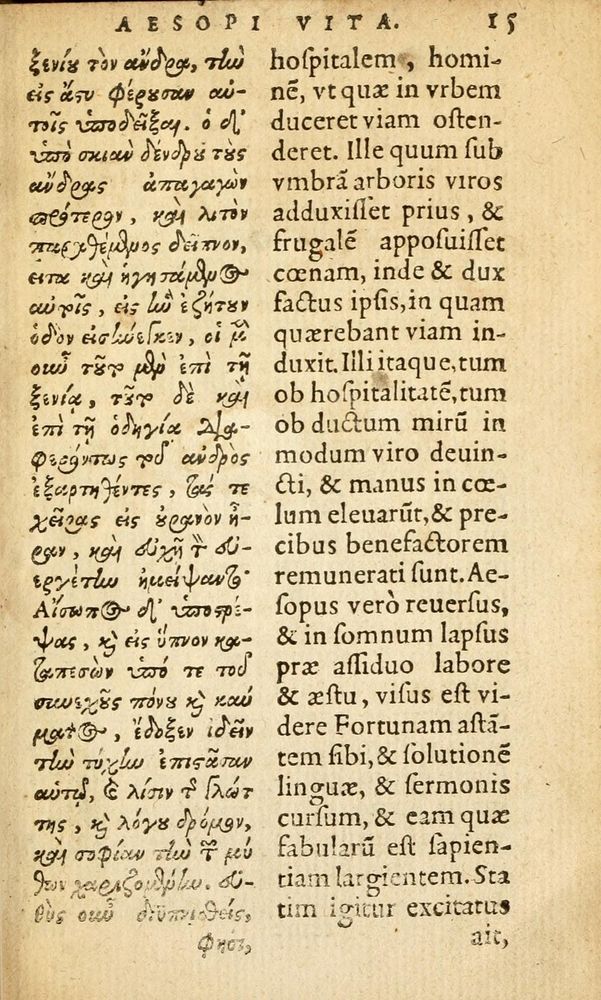 AESOPI VITA. 15
ξενίου τὸν ἄνδρα, τὴν
εἰς ἄστυ φέρουσαν αὐ-
τοῖς ὑποδεῖξαι. ὁ δ'
ὑπὸ σκιὰν δένδρου τοὺς
ἄνδρας ἀπαγαγὼν
πρότερον, καὶ λιτὸν
παραθέμενος δεῖπνον,
εἶτα καὶ ἡγησάμενος
αὐτοῖς, εἰς ἣν ἐζήτουν
ὁδὸν εἰσήνεγκεν, οἱ
οὖν τοῦτο μὲν ἐπὶ τῇ
ξενίᾳ, τοῦτο δὲ καὶ
ἐπὶ τῇ ὁδηγίᾳ δια-
φερόντως τοῦ ἀνδρὸς
ἐξαρτηθέντες, τάς τε
χεῖρας εἰς οὐρανὸν ἦ-
ραν, καὶ εὐχῇ τὸν εὐ-
εργέτην ἠμείψαντο.
Αἴσωπος δ' ὑποστρέ-
ψας, καὶ εἰς ὕπνον κα-
ταπεσὼν ὑπό τε τοῦ
συνεχοῦς πόνου καὶ καύ
ματος, ἔδοξεν ἰδεῖν
τὴν τύχην ἐπιστᾶσαν
αὐτῷ, καὶ λύσιν τῆς γλώτ
της, καὶ λόγου δρόμον,
καὶ σοφίαν τὴν τῶν μύ
θων χαριζομένην. εὐ-
θὺς οὖν διυπνισθείς,
φησὶ,
hoſpitalem, homi-
nē, vt quæ in vrbem
duceret viam oſten-
deret. Ille quum ſub
vmbrā arboris viros
adduxiſſet prius, &
frugalē appoſuiſſet
cœnam, inde & dux
factus ipſis, in quam
quærebant viam in-
duxit. Illi itaque, tum
ob hoſpitalitatē, tum
ob ductum mirū in
modum viro deuin-
cti, & manus in cœ-
lum eleuarūt, & pre-
cibus benefactorem
remunerati ſunt. Ae-
ſopus verò reuerſus,
& in ſomnum lapſus
præ aſſiduo labore
& æſtu, viſus eſt vi-
dere Fortunam aſtā-
tem ſibi, & ſolutionē
linguæ, & ſermonis
curſum, & eam quæ
fabularū eſt ſapien-
tiam largientem. Sta
tim igitur excitatus
ait,